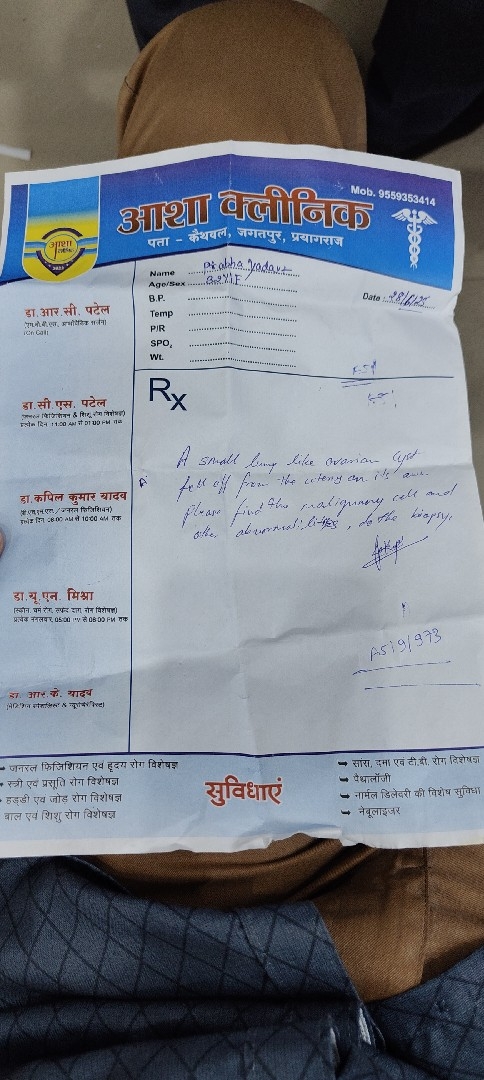 आशा क्लीनिक
Mob. 9559353414
पता - कैथवल, जगतपुर, प्रयागराज
आशा
Name
Age/Sex
Date : 28/6/25
B.P.
Temp
P/R
SPO₂
Wt.
Rx
डा.आर.सी. पटेल
(On Call)
डा.सी.एस. पटेल
(जनरल फिजिशियन & शिशु रोग विशेषज्ञ)
प्रत्येक दिन, 11:00 AM से 01:00 PM तक
डा.कपिल कुमार यादव
प्रत्येक दिन, 08:00 AM से 10:00 AM तक
डा.यू.एन. मिश्रा
प्रत्येक मंगलवार, 05:00 PM से 08:00 PM तक
डा. आर.के. यादव
A small lump like ovarian cyst
fell off from the uterus on its own
Please find the malignancy cell and
other abnormalities, do the biopsy.
A5/9/973
जनरल फिजिशियन एवं हृदय रोग विशेषज्ञ
स्त्री एवं प्रसूति रोग विशेषज्ञ
हड्डी एवं जोड़ रोग विशेषज्ञ
बाल एवं शिशु रोग विशेषज्ञ
सुविधाएं
सांस, दमा एवं टी.बी. रोग विशेषज्ञ
पैथालॉजी
नार्मल डिलेवरी की विशेष सुविधा
नेबूलाइजर